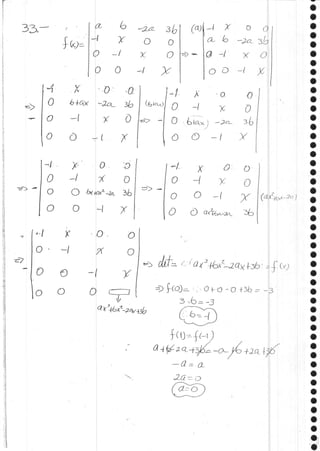 33-
f(x)= | a b -2a 3b |
| -1 x 0 0 |
| 0 -1 x 0 |
| 0 0 -1 x |
(a) | -1 x 0 0 |
⇒ - | a b -2a 3b |
| 0 -1 x 0 |
| 0 0 -1 x |
⇒ - | -1 x 0 0 |
| 0 b+ax -2a 3b |
| 0 -1 x 0 |
| 0 0 -1 x |
(b+ax) | -1 x 0 0 |
⇒ | 0 -1 x 0 |
| 0 b+ax -2a 3b |
| 0 0 -1 x |
| -1 x 0 0 |
⇒ - | 0 -1 x 0 |
| 0 0 bx+ax²-2a 3b |
| 0 0 -1 x |
⇒ | -1 x 0 0 |
| 0 -1 x 0 |
| 0 0 -1 x | (ax²+bx-2a)
| 0 0 ax²+bx-2a 3b |
⇒ | -1 x 0 0 |
| 0 -1 x 0 |
| 0 0 -1 x |
| 0 0 0 |
ax³+bx²-2ax+3b
⇒ det = ax³+bx²-2ax+3b = f(x)
⇒ f(0) = 0+0-0+3b = -3
3.b = -3
b = -1
f(1) = f(-1)
a+b-2a+3b = -a+b+2a+3b
-a = a
2a = 0
a = 0